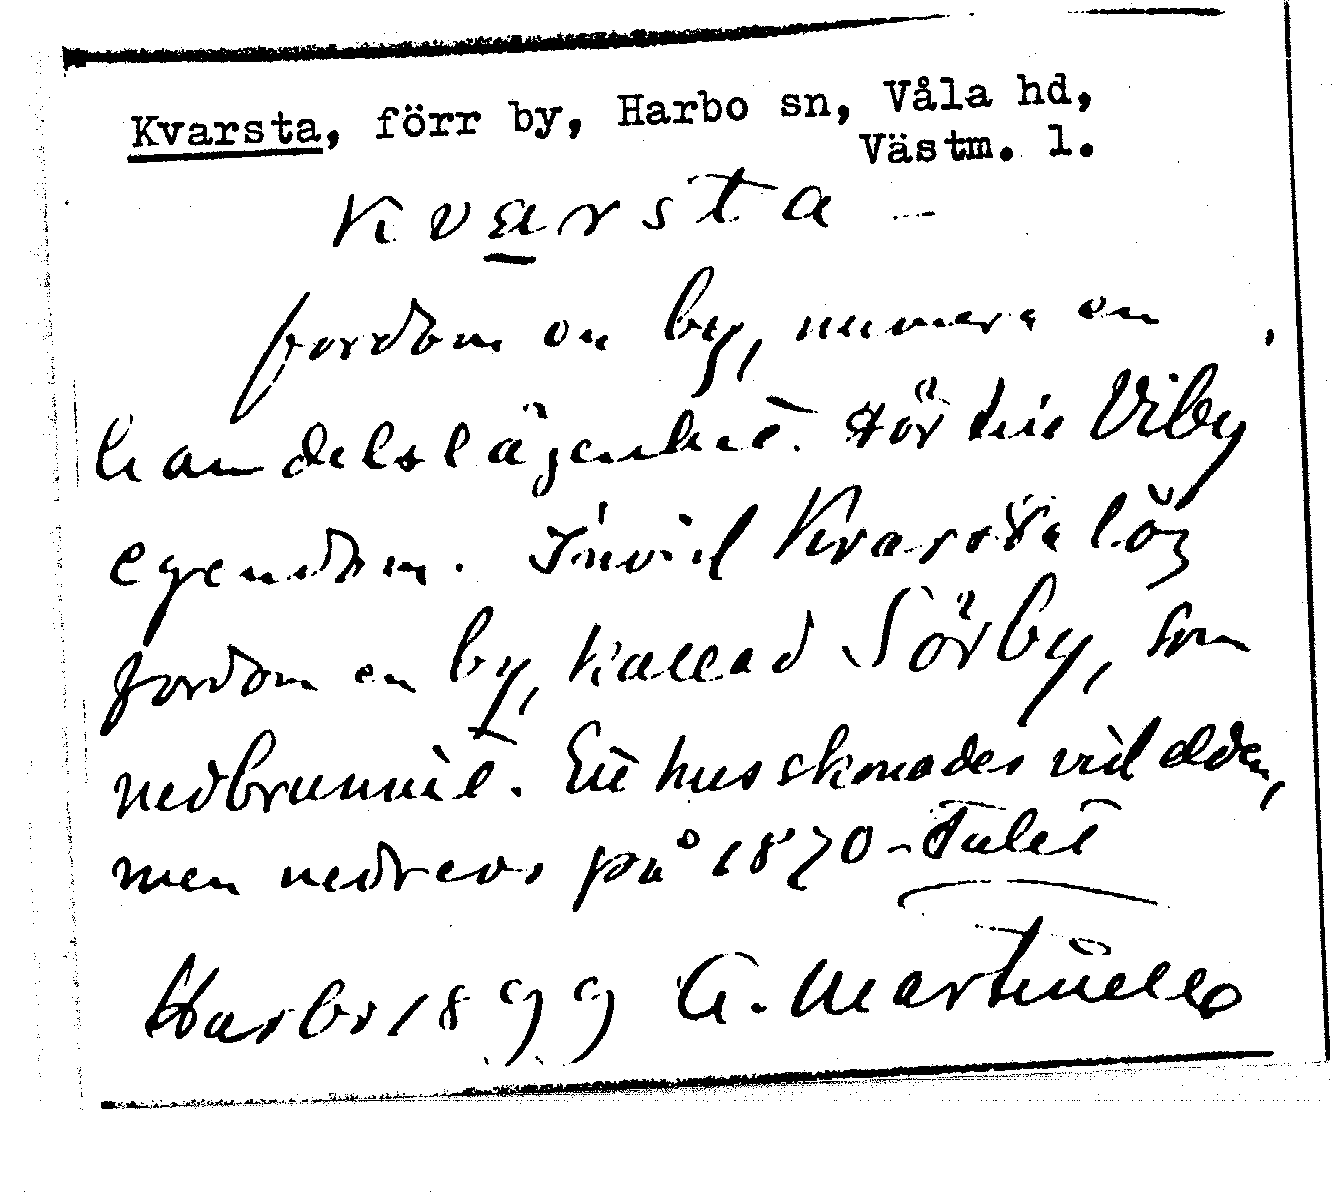 Kvarsta, förr by, Harbo sn, Våla hd,
Västm. l.
Kvarsta
fordom en by, numera en
handelslägenhet. Hör till Viby
egendom. Invid Kvarsta låg
fordom en by, kallad Sörby, som
nedbrunnit. Ett hus skonades vid elden,
men nedrevs på 1870-talet
Harbo 1899 A. Martinell